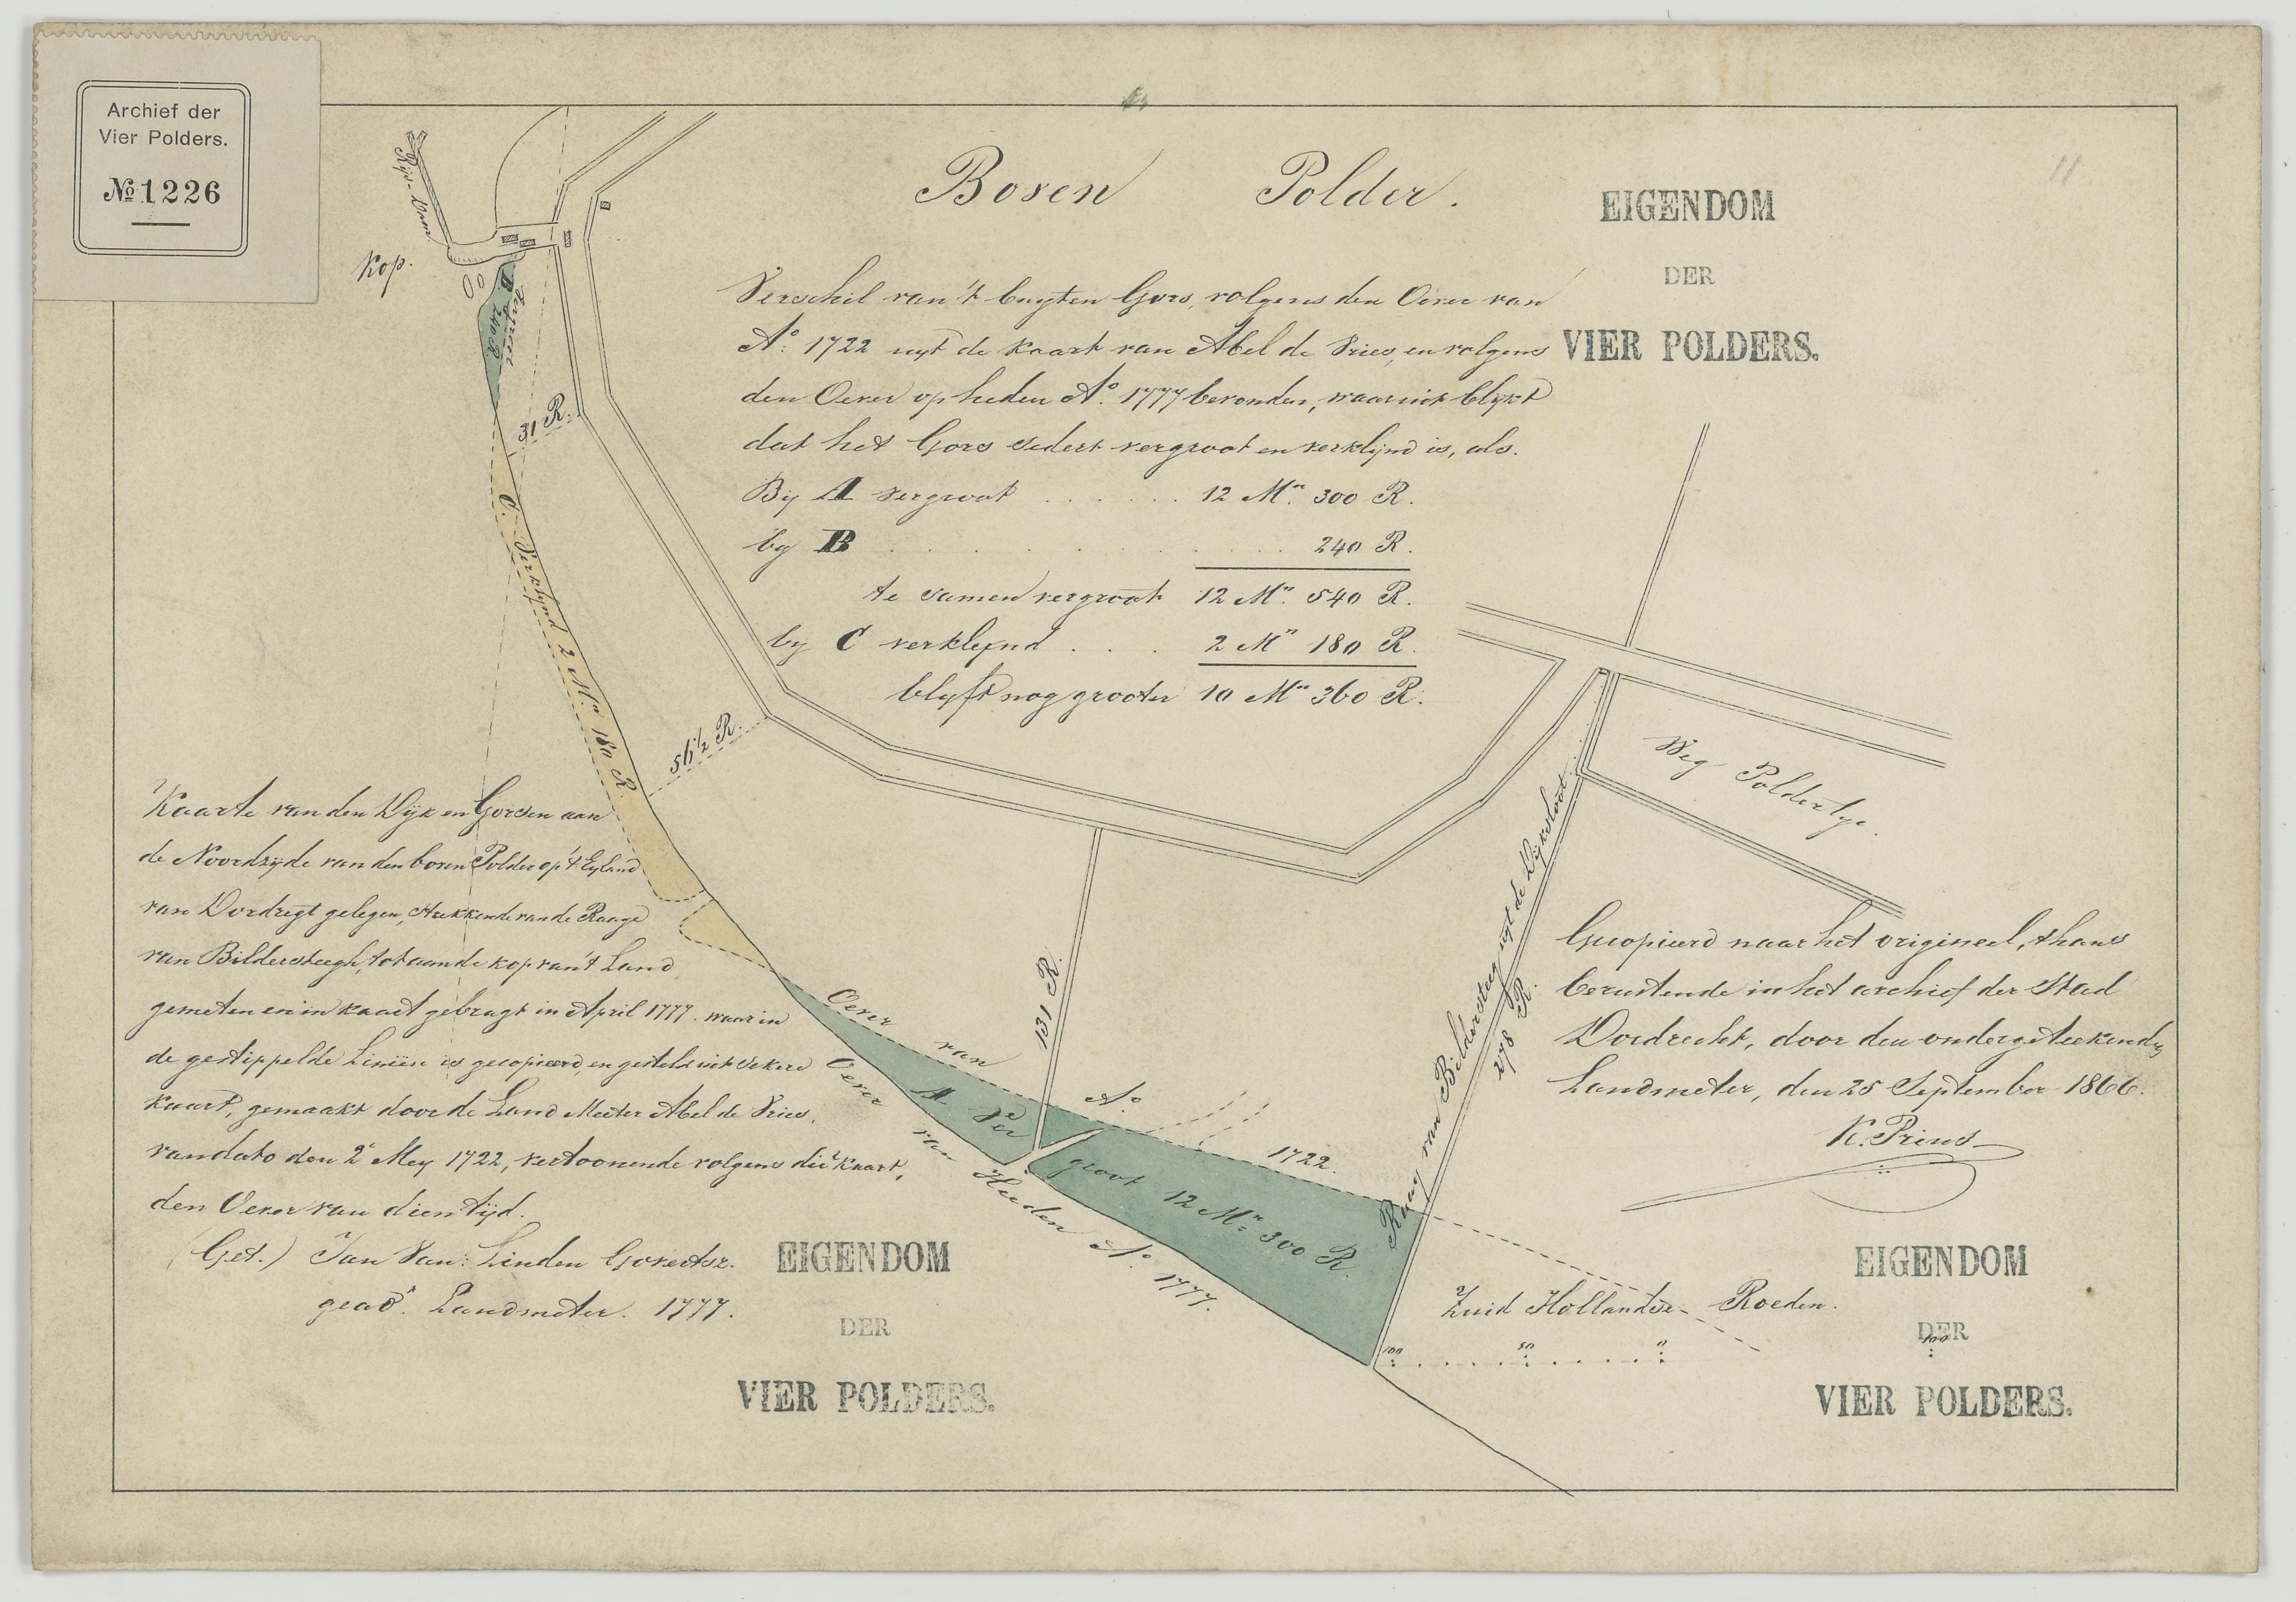 Archief der
Vier Polders.
№ 1226
11
Boven Polder.
EIGENDOM
DER
VIER POLDERS.
Rijs-Dam
Kop.
Verschil van't buyten Gors, volgens den Oever van
A.º 1722 uyt de kaart van Abel de Vries, en volgens
den Oever op heden A.º 1777 bevonden, waaruit blykt
dat het Gors sedert vergroot en verklijnd is, als.
By A vergroot . . . . . . 12 M.n 300 R.
by B . . . . . . . . . . 240 R.
te samen vergroot 12 M.n 540 R.
by C verkleynd . . . 2 M.n 180 R.
blyft nog grooter 10 M.n 360 R.
B Vergroot
240 R.
31 R.
C. Verklijnd 2 M.n 180 R.
56½ R.
Weg Poldertye.
Kaarte van den Dijk en Gorsen aan
de Noordzyde van den boven Polder op 't Eyland
van Dordregt gelegen, strekkende van de Raage
van Bildersteegh, tot aan de kop van't Land
gemeten en in kaart gebragt in April 1777. waar in
de gestippelde Liniën is gecopieerd, en gesteld uit sekere
kaart, gemaakt door de Land Meeter Abel de Vries.
van dato den 2e Mey 1722, vertoonende volgens die kaart,
den Oever van dien tijd.
(Get.) Jan Van: Linden Goverts.
geadt. Landmeter. 1777.
Oever van A.º 1722.
Oever van Heden A.º 1777.
A Vergroot 12 M.n 300 R.
131 R.
Raay van Bildersteeg uyt de Dijksloot
278 R.
Gecopieerd naar het origineel, thans
berustende in het archief der Stad
Dordrecht, door den ondergeteekenden
Landmeter, den 25 September 1866.
K. Prins
EIGENDOM
DER
VIER POLDERS.
Zuid Hollandse Roeden.
100 50 0 100
EIGENDOM
DER
VIER POLDERS.